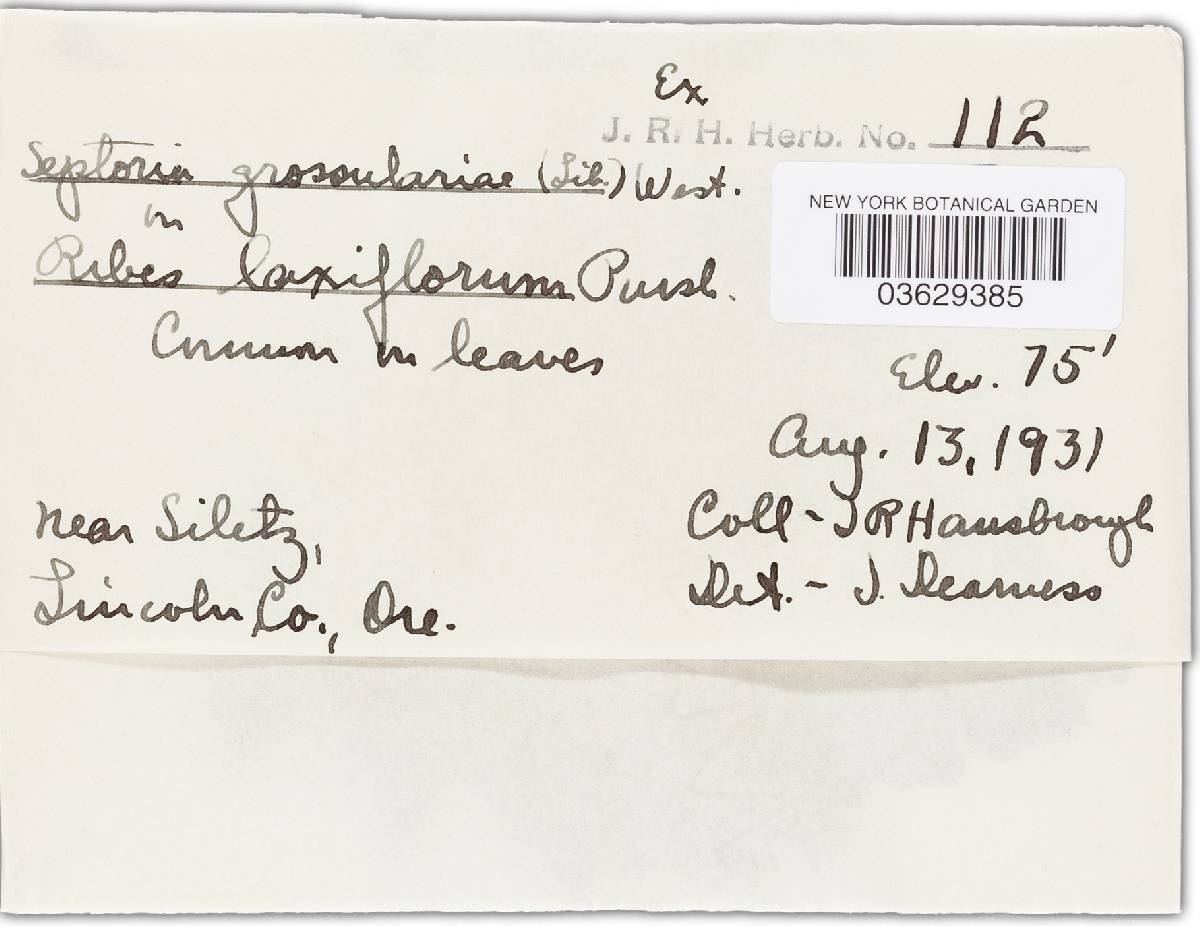 Ex
J. R. H. Herb. No. 112
Septoria grossulariae (Lib.) West.
on
Ribes laxiflorum Pursh.
Common on leaves
NEW YORK BOTANICAL GARDEN
03629385
Elev. 75'
Aug. 13, 1931
Near Siletz,
Lincoln Co., Ore.
Coll - J R Hansbrough
Det. - J. Dearness